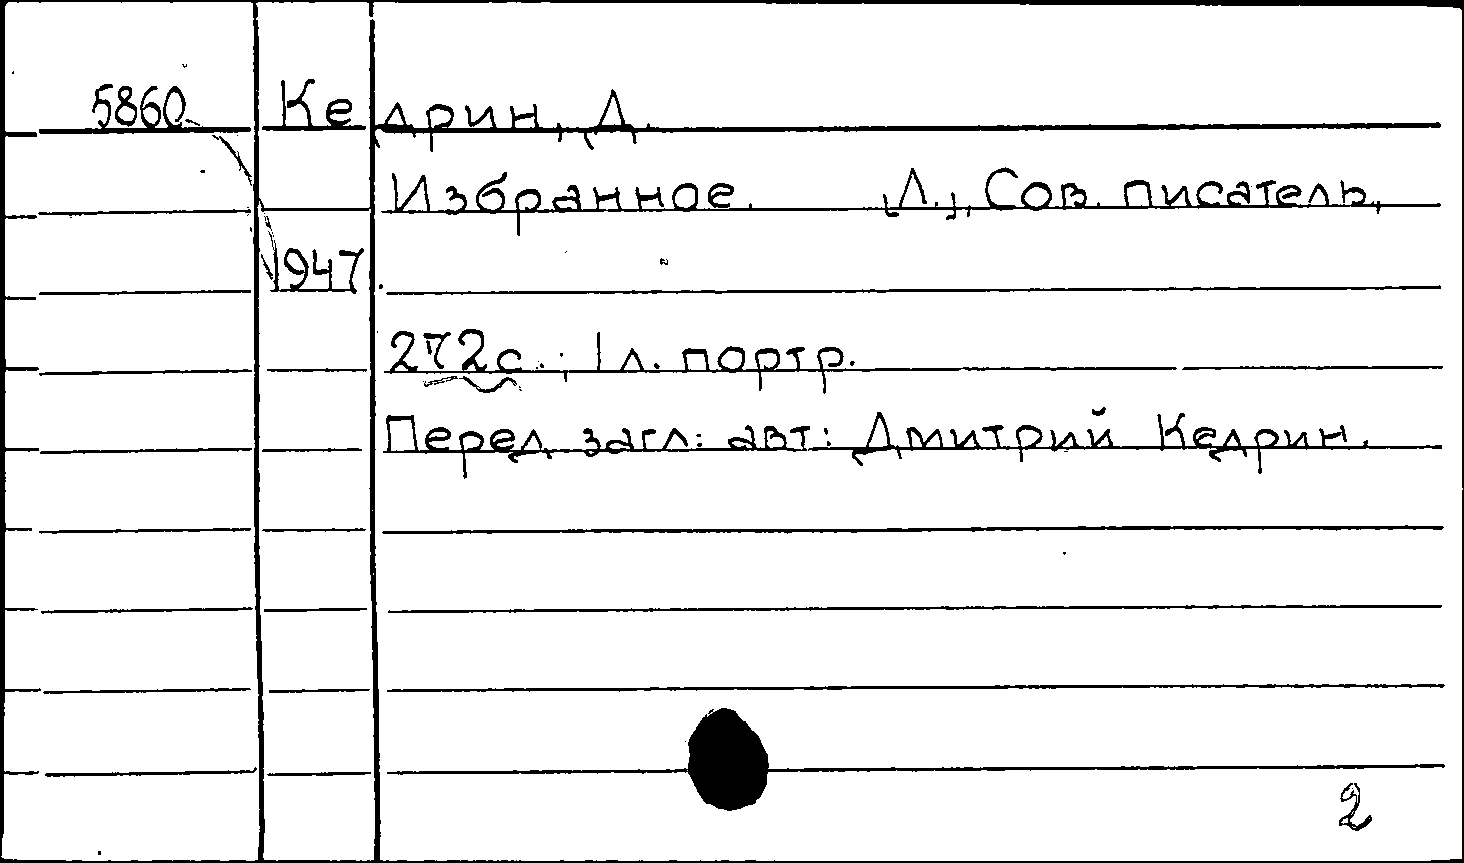 5860 Кедрин, Д.
Избранное. [Л.], Сов. писатель,
1947.
272с.; 1 л. портр.
Перед загл: авт: Дмитрий Кедрин.
2